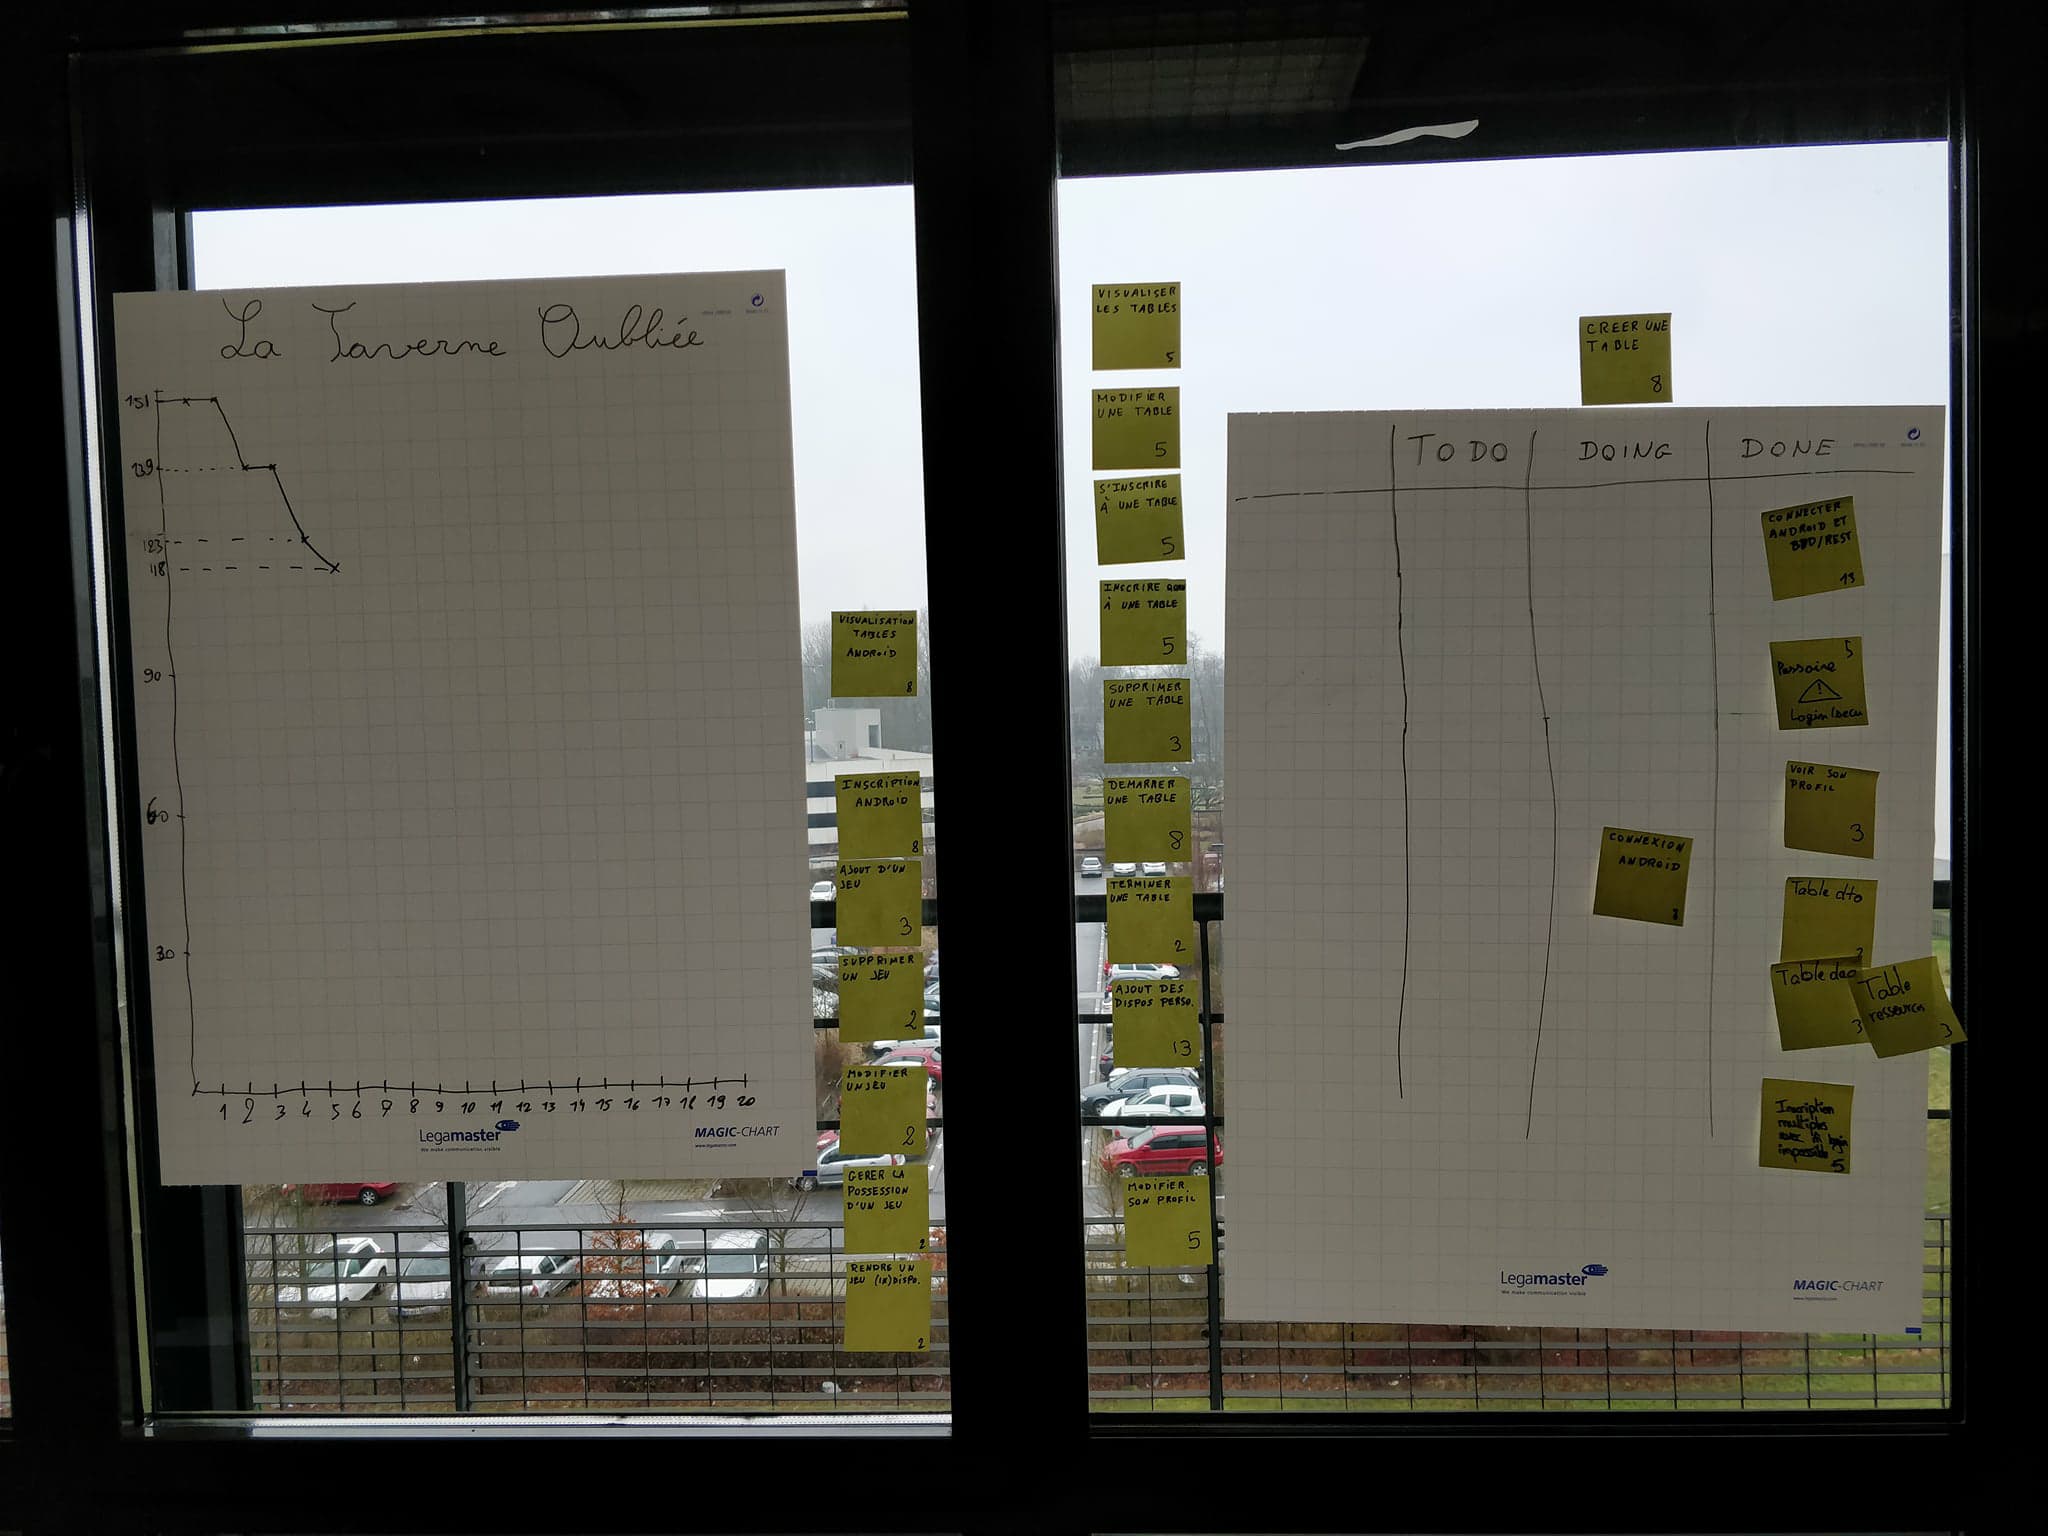 La Taverne Oubliée
151
139
123
118
90
60
30
1 2 3 4 5 6 7 8 9 10 11 12 13 14 15 16 17 18 19 20
Legamaster
We make communication visible
MAGIC-CHART
www.legamaster.com
VISUALISATION
TABLES
ANDROID
8
INSCRIPTION
ANDROID
8
AJOUT D'UN
JEU
3
SUPPRIMER
UN JEU
2
MODIFIER
UN JEU
2
GERER LA
POSSESSION
D'UN JEU
2
RENDRE UN
JEU (IN)DISPO.
2
VISUALISER
LES TABLES
5
MODIFIER
UNE TABLE
5
S'INSCRIRE
À UNE TABLE
5
INSCRIRE
À UNE TABLE
5
SUPPRIMER
UNE TABLE
3
DEMARRER
UNE TABLE
8
TERMINER
UNE TABLE
2
AJOUT DES
DISPOS PERSO.
13
MODIFIER
SON PROFIL
5
CREER UNE
TABLE
8
TO DO
DOING
DONE
CONNEXION
ANDROID
CONNECTER
ANDROID ET
BDD/REST
13
5
!
Login/secu
VOIR SON
PROFIL
3
Table dto
Table dao
3
Table
ressources
3
Inscription
multiples
impossible
5
Legamaster
We make communication visible
MAGIC-CHART
www.legamaster.com